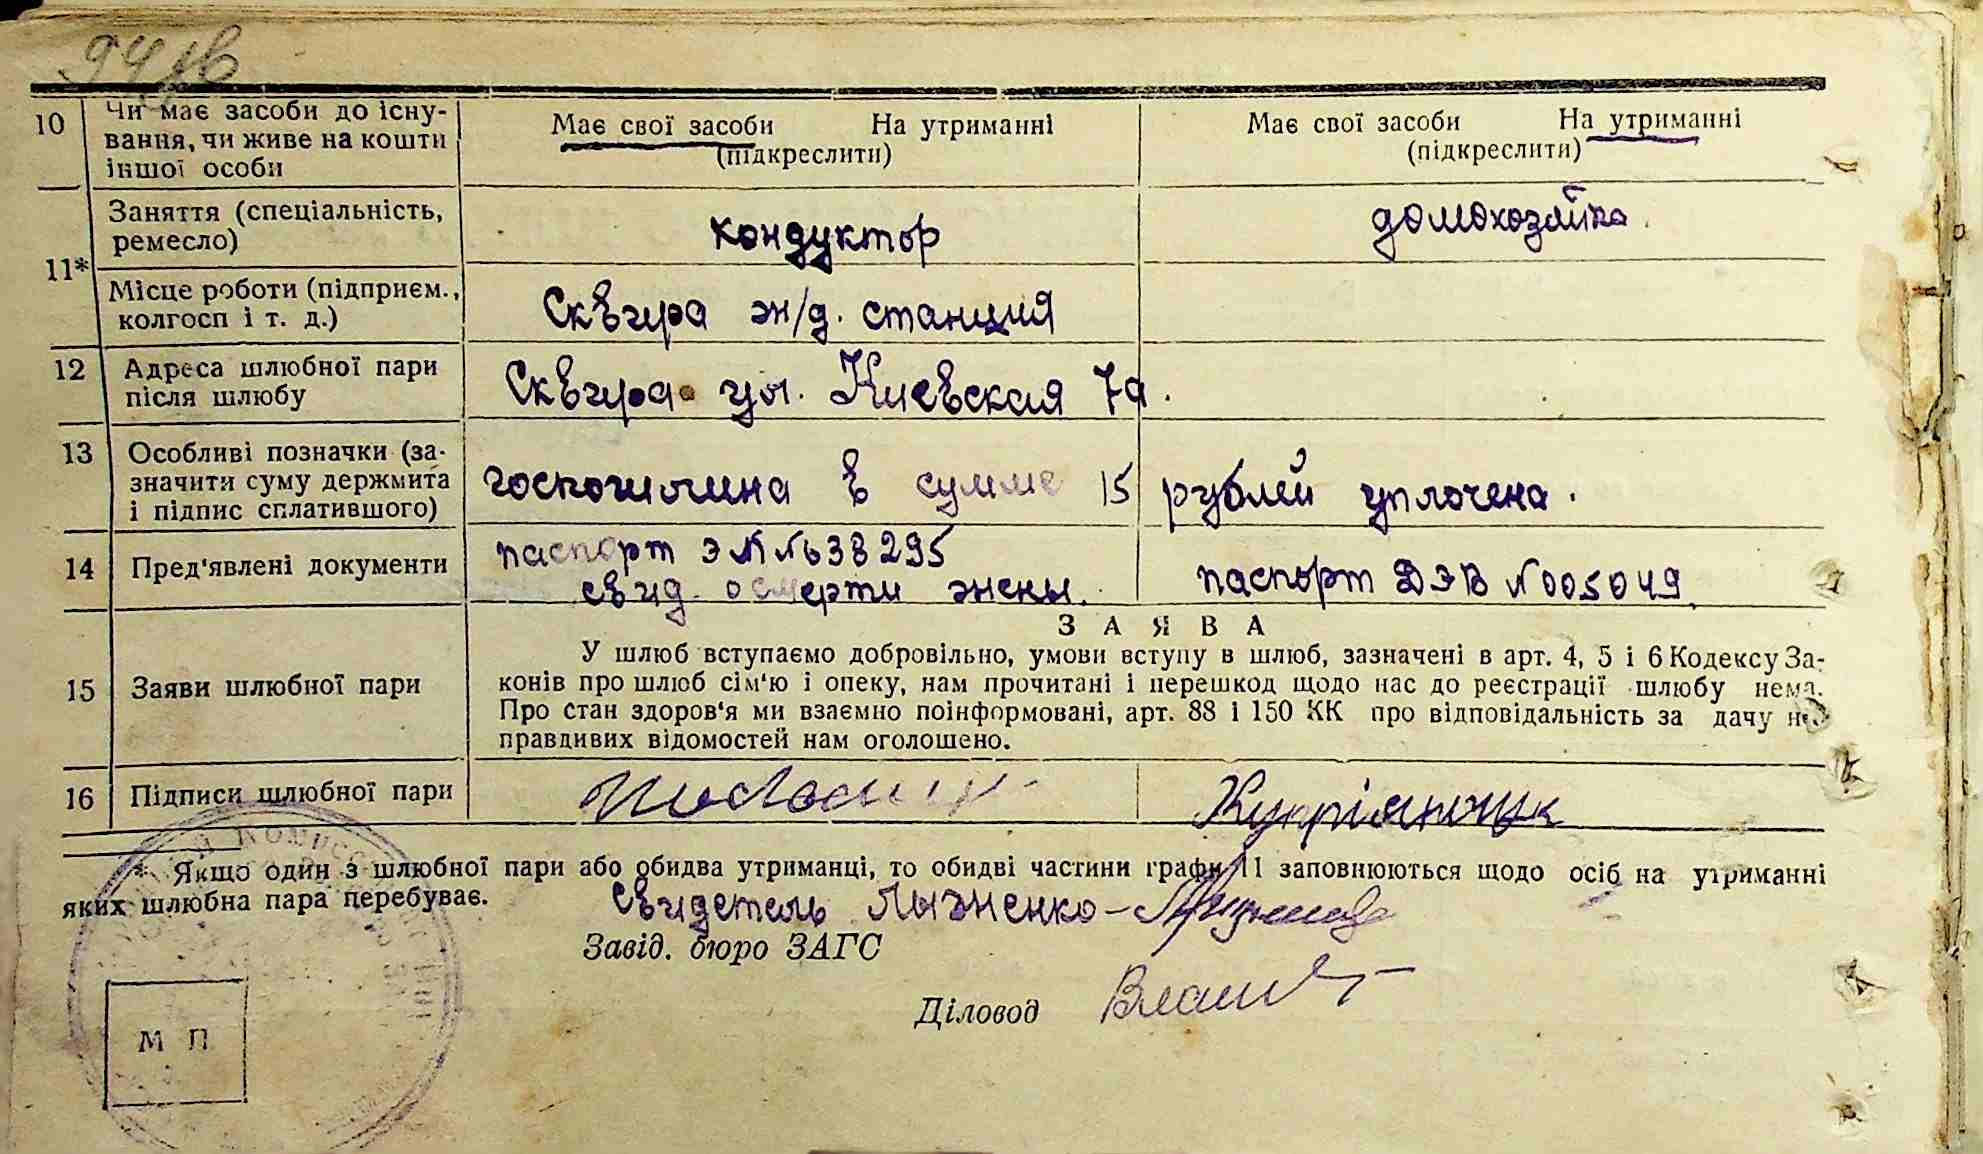 94 зв
10 Чи має засоби до існу-
вання, чи живе на кошти
іншої особи
Має свої засоби На утриманні
(підкреслити)
Має свої засоби На утриманні
(підкреслити)
11* Заняття (спеціальність,
ремесло)
кондуктор
домохозяйка.
Місце роботи (підприєм.,
колгосп і т. д.)
Сквира ж/д. станция
12 Адреса шлюбної пари
після шлюбу
Сквира ул. Киевская 7а.
13 Особливі позначки (за-
значити суму держмита
і підпис сплатившого)
госпошлина в сумме 15 рублей уплочена.
14 Пред'явлені документи
паспорт ЭЛ №638295
свид. о смерти жены.
паспорт ДЭВ №005049.
З А Я В А
15 Заяви шлюбної пари
У шлюб вступаємо добровільно, умови вступу в шлюб, зазначені в арт. 4, 5 і 6 Кодексу За-
конів про шлюб сім'ю і опеку, нам прочитані і перешкод щодо нас до реєстрації шлюбу нема.
Про стан здоров'я ми взаємно поінформовані, арт. 88 і 150 КК про відповідальність за дачу не-
правдивих відомостей нам оголошено.
16 Підписи шлюбної пари
Купріянчук
* Якщо один з шлюбної пари або обидва утриманці, то обидві частини графи 11 заповнюються щодо осіб на утриманні
яких шлюбна пара перебуває.
Свидетель Лызненко-
Завід. бюро ЗАГС
Діловод
М П